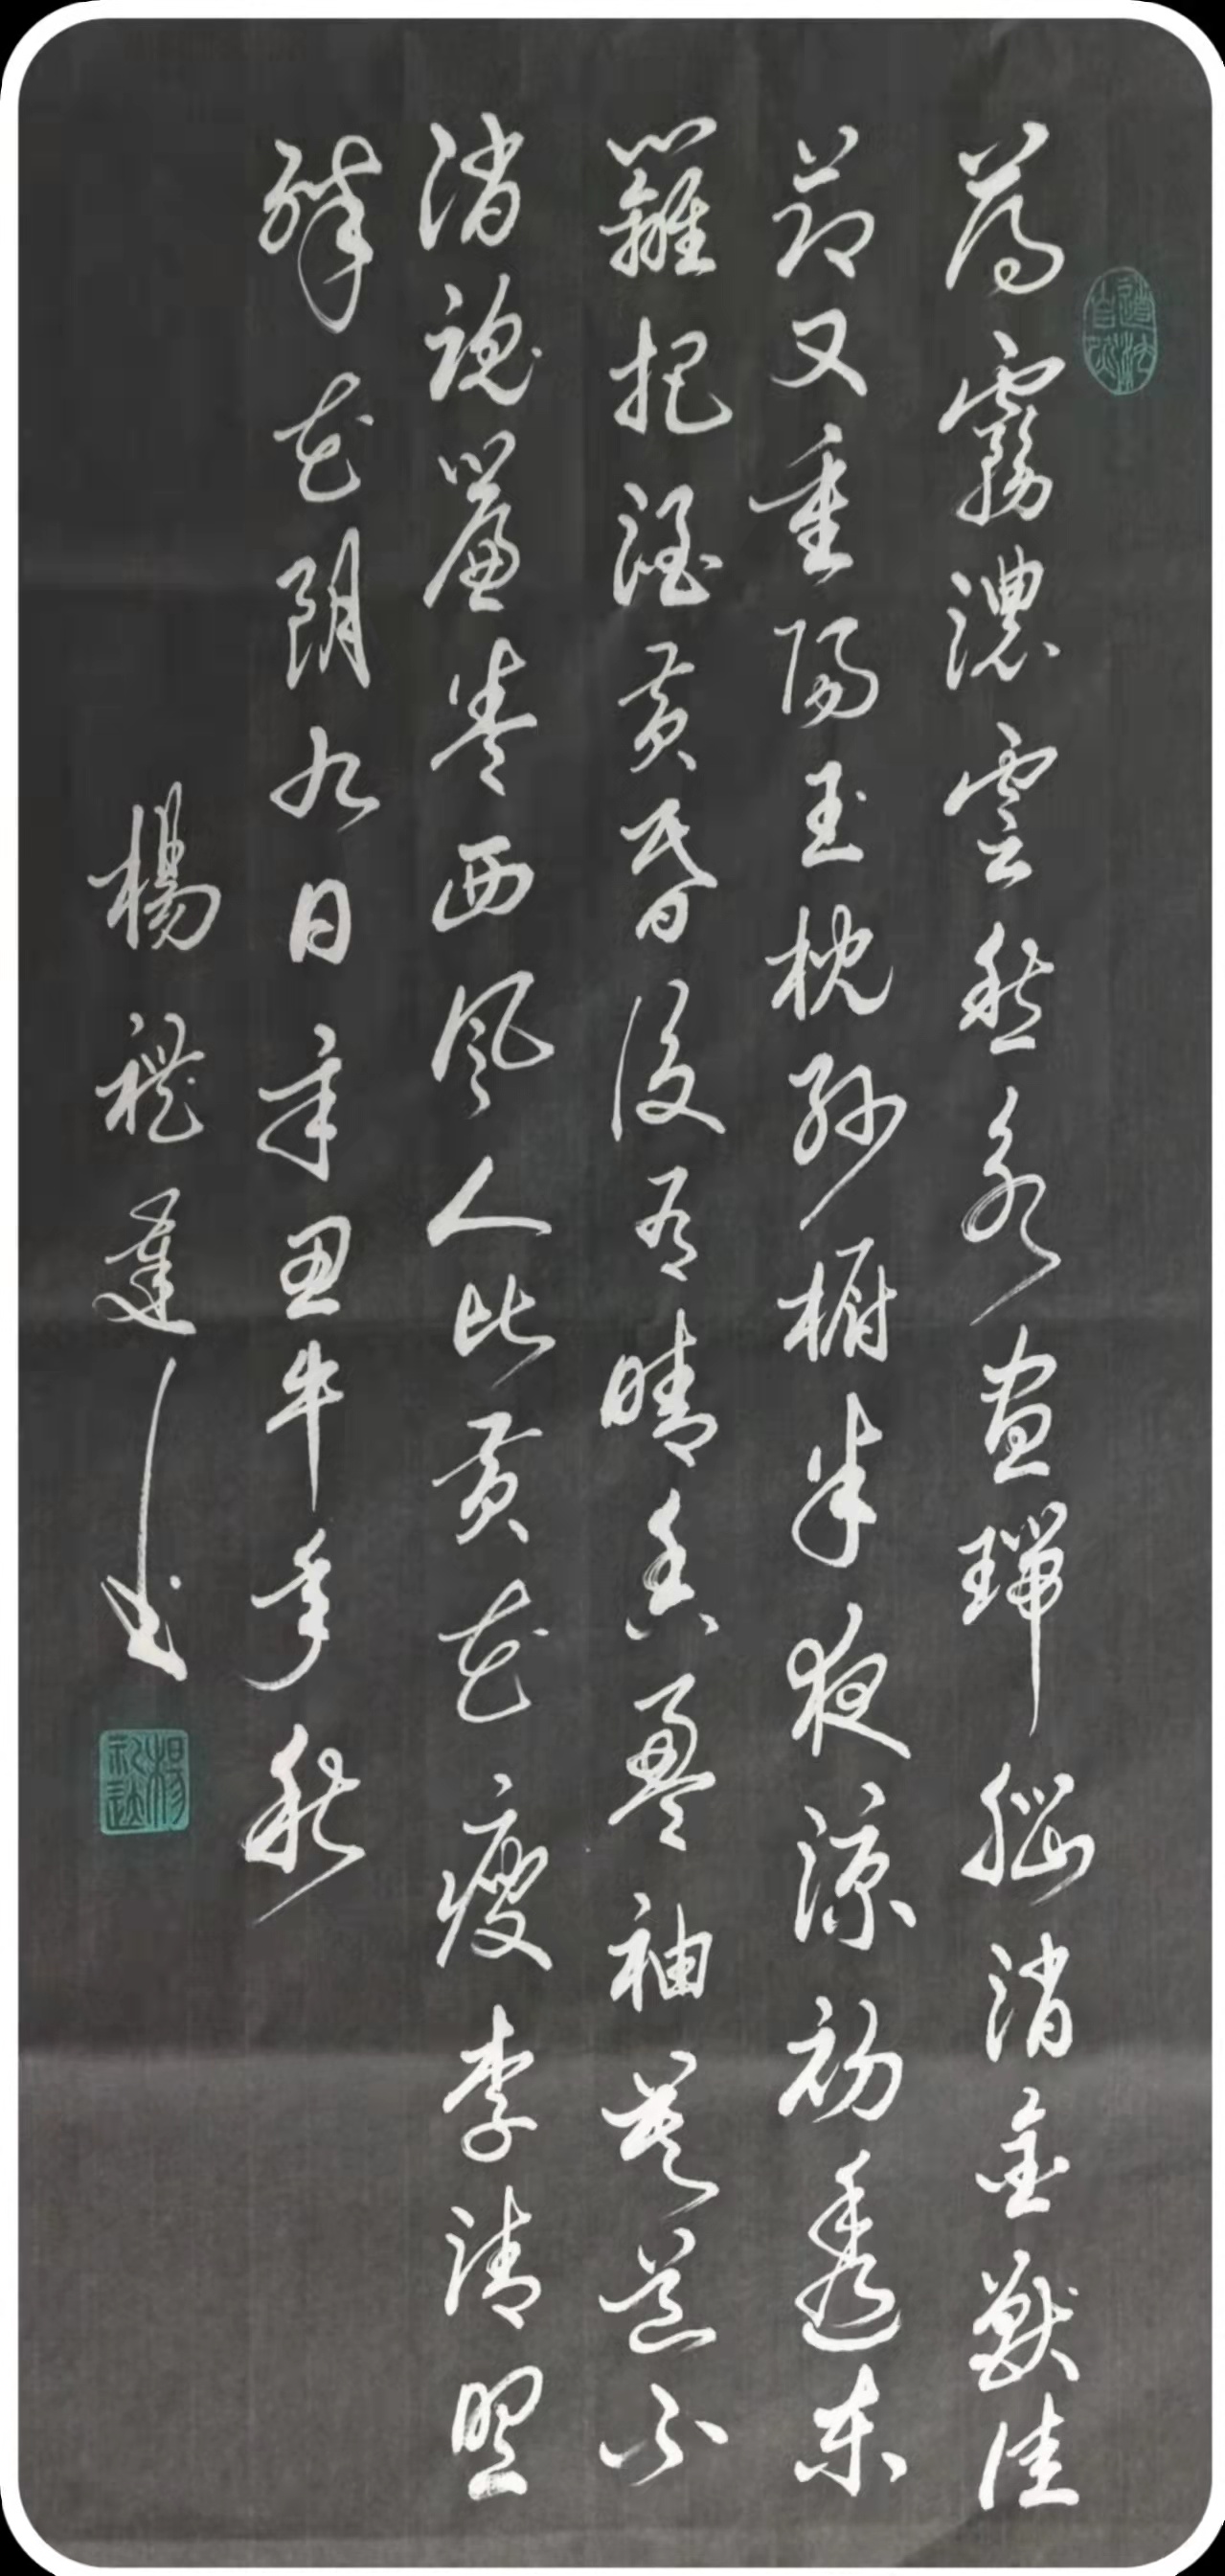 薄霧濃雲愁永晝瑞腦消金獸佳
節又重陽玉枕紗櫥半夜涼初透東
籬把酒黃昏後有暗香盈袖莫道不
消魂簾卷西風人比黃花瘦李清照
醉花陰九日辛丑牛年秋
楊禮達书
道法自然
楊礼达